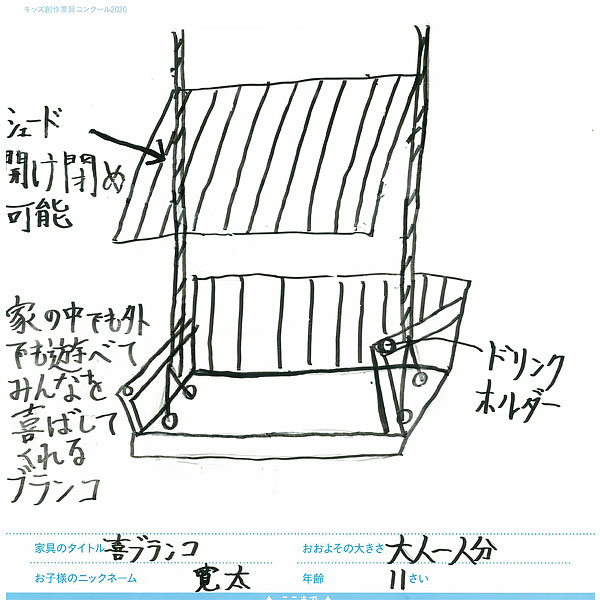 キッズ創作家具コンクール2020
シェード
開け閉め
可能
家の中でも外
でも遊べて
みんなを
喜ばして
くれる
ブランコ
ドリンク
ホルダー
家具のタイトル 喜ブランコ
おおよその大きさ 大人一人分
お子様のニックネーム 寛太
年齢 11さい
▲ ここまで ▲